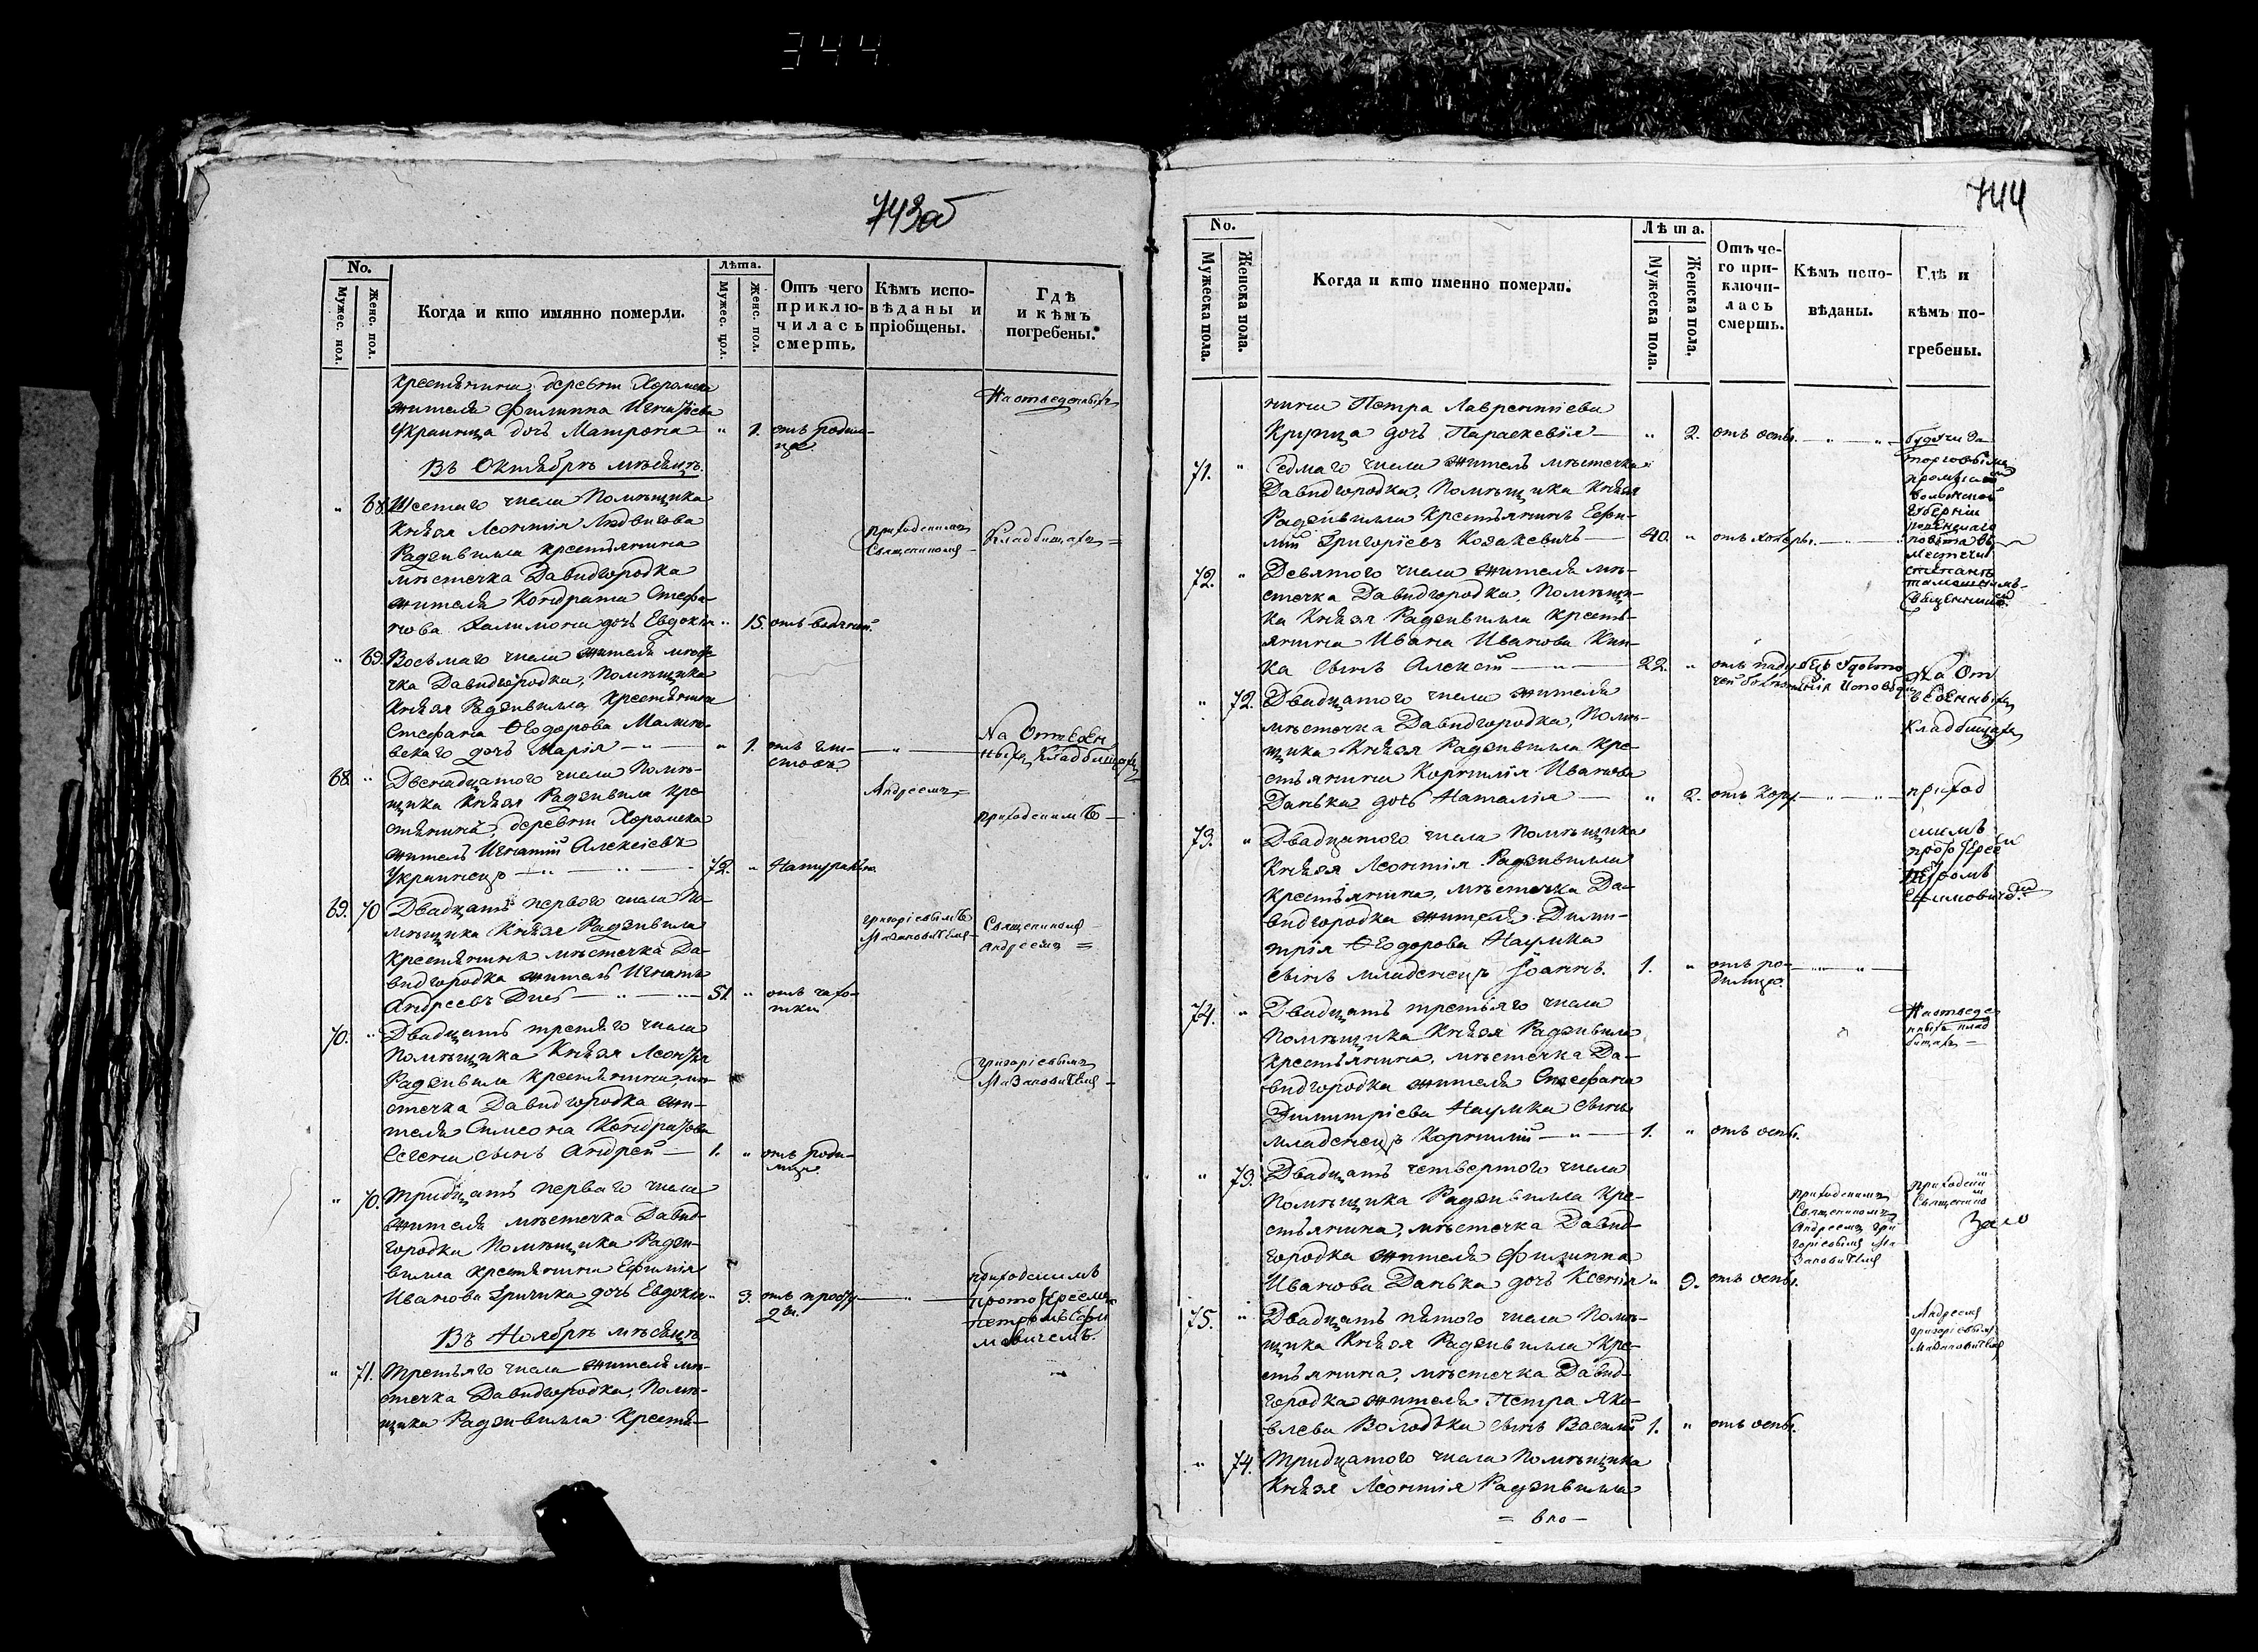 344.
743об
No.
Мужес. пол.
Женс. пол.
Когда и кто имянно померли.
Лѣта.
Мужес. пол.
Женс. пол.
Отъ чего приклю-чилась смерть.
Кѣмъ испо-вѣданы и пріобщены.
Гдѣ и кѣмъ погребены.
крестьянина, деревни Хоромска
жителя Филиппа Игнатіева
Украинца дочь Матрона " 1. отъ родим-
ца.
На отведенныхъ
Въ Октябрѣ мѣсяцѣ.
" 68. Шестаго числа Помѣщика
Князя Леонтія Людвигова
Радзивилла крестьянина
мѣстечка Давидгородка
жителя Кондрата Стефа-
нова дочь Евдокія " 15. отъ водяной.
приходскимъ
Священникомъ
Кладбищахъ =
" 69. Восьмаго числа жителя мѣсте-
чка Давидгородка, Помѣщика
Князя Радзивилла крестьянина
Стефана Ѳеодорова Малин-
вскаго дочь Марія — " — " 1. отъ гли-
стовъ.
На Отведен
ныхъ Кладбищахъ
68. " Двенадцатого числа Помѣ-
щика Князя Радзивила кре-
стьянинъ, деревни Хоромска
житель Игнатій Алексіевъ
Украинецъ — " — " — 72. " Натурально
Андреемъ =
приходскимъ —
69. 70 Двадцать перваго числа По-
мѣщика Князя Радзивила
Крестьянинъ мѣстечка Да-
видгородка житель Игнатъ
Андреевъ — " — 51. " отъ чахо-
тки
григоріевымъ
Священникомъ
Андреемъ =
70. " Двадцать третьяго числа
Помѣщика Князя Леонтія
Радзивила крестьянина, мѣ-
стечка Давидгородка жи-
теля Симеона Кондратова
сынъ Андрей — 1. " отъ роди-
мца.
григоріевымъ
" 70. Тридцать перваго числа
жителя мѣстечка Давид-
городка Помѣщика Радзи-
вилла крестьянина Ефимія
Иванова Гричика дочь Евдокія " 3. отъ
приходскимъ
протоіереемъ
Петромъ Ефи
мовичемъ.
Въ Ноябрѣ мѣсяцѣ
" 71. Третьяго числа жителя мѣ-
стечка Давидгородка, Помѣ-
щика Радзивилла Крестья-
744
No.
Мужеска пола.
Женска пола.
Когда и кто именно померли.
Лѣта.
Мужеска пола.
Женска пола.
Отъ че-го при-ключи-лась смерть.
Кѣмъ испо-вѣданы.
Гдѣ и кѣмъ по-гребены.
нина Петра Лаврентіева
Крупца дочь Параскевія — " 2. отъ оспы. — " — " —
71. " Седмаго числа житель мѣстечка
Давидгородка, Помѣщика Князя
Радзивилла Крестьянинъ Ефи-
мій Григоріевъ Козакевичъ — 40. " отъ холеры. —
будучи за
торговымъ
промысломъ
волынской
губерніи
повѣта въ
местечкѣ
степанѣ
тамошнимъ
Священникомъ.
72. " Девятого числа жителя мѣ-
стечка Давидгородка, Помѣщи-
ка Князя Радзивилла Кресть-
янина Ивана Иванова Кип-
ка сынъ Алексѣй — " — 22. " отъ паду
чей болѣзни
исповѣди
На От
веденныхъ
Кладбищахъ
" 72. Двадцатого числа жителя
мѣстечка Давидгородка, Помѣ-
щика Князя Радзивилла кре-
стьянина Корнилія Иванова
Данька дочь Наталія — " 2. отъ кору. — " — " —
приход
скимъ
протоіерее
Петромъ
Ефимовичемъ.
73. " Двадцатого числа Помѣщика
Князя Леонтія Радзивилла
Крестьянина, мѣстечка Да-
видгородка жителя Дими-
трія Ѳеодорова Наумка
сынъ младенецъ Іоаннъ. 1. " отъ ро-
димца. — " — " —
74. " Двадцать третьяго числа
Помѣщика Князя Радзивила
крестьянина, мѣстечка Да-
видгородка жителя Стефана
Димитріева Наумка сынъ
младенецъ Корнилій — " — 1. " отъ оспы.
На отведе
нныхъ клад
бищахъ —
" 73. Двадцать четвертого числа
Помѣщика Радзивилла кре-
стьянина, мѣстечка Давид-
городка жителя Филиппа
Иванова Данька дочь Ксенія " 9. отъ оспы.
приходскимъ
Священникомъ
Андреемъ гри
горіевымъ
приходскимъ
Священникомъ
75. " Двадцать пятого числа Помѣ-
щика Князя Радзивилла кре-
стьянина, мѣстечка Давид-
городка жителя Петра Яко-
влева Володька сынъ Василій 1. " отъ оспы.
Андреемъ
григоріевымъ
" 74. Тридцатого числа Помѣщика
Князя Леонтія Радзивилла